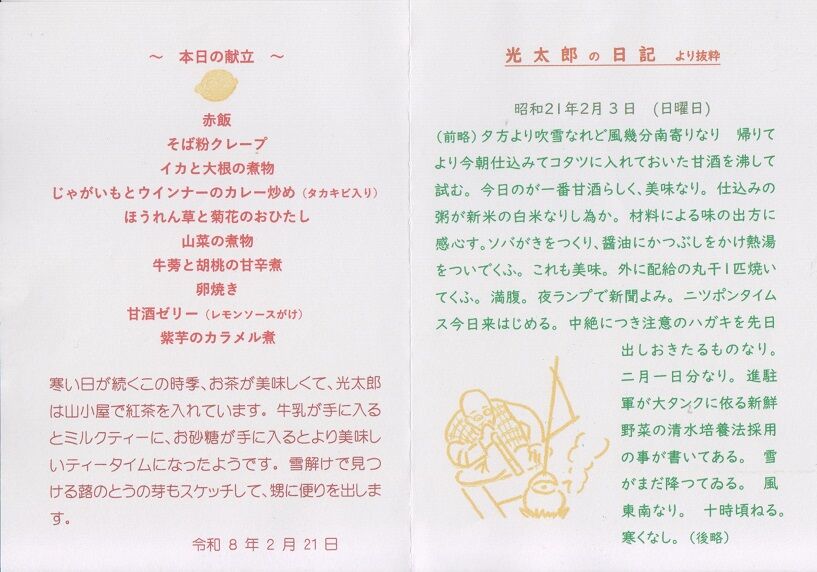 ～ 本日の献立 ～
赤飯
そば粉クレープ
イカと大根の煮物
じゃがいもとウインナーのカレー炒め（タカキビ入り）
ほうれん草と菊花のおひたし
山菜の煮物
牛蒡と胡桃の甘辛煮
卵焼き
甘酒ゼリー（レモンソースがけ）
紫芋のカラメル煮
寒い日が続くこの時季、お茶が美味しくて、光太郎
は山小屋で紅茶を入れています。牛乳が手に入る
とミルクティーに、お砂糖が手に入るとより美味し
いティータイムになったようです。雪解けで見つ
ける蕗のとうの芽もスケッチして、甥に便りを出しま
す。
令和 8 年 2 月 21 日
光太郎の日記 より抜粋
昭和21年2月3日 （日曜日）
（前略）夕方より吹雪なれど風幾分南寄りなり 帰りて
より今朝仕込みてコタツに入れておいた甘酒を沸して
試む。今日のが一番甘酒らしく、美味なり。仕込みの
粥が新米の白米なりし為か。材料による味の出方に
感心す。ソバがきをつくり、醤油にかつぶしをかけ熱湯
をついでくふ。これも美味。外に配給の丸干1匹焼い
てくふ。満腹。夜ランプで新聞よみ。ニツポンタイム
ス今日来はじめる。中絶につき注意のハガキを先日
出しおきたるものなり。
二月一日分なり。進駐
軍が大タンクに依る新鮮
野菜の清水培養法採用
の事が書いてある。雪
がまだ降つてゐる。風
東南なり。十時頃ねる。
寒くなし。（後略）